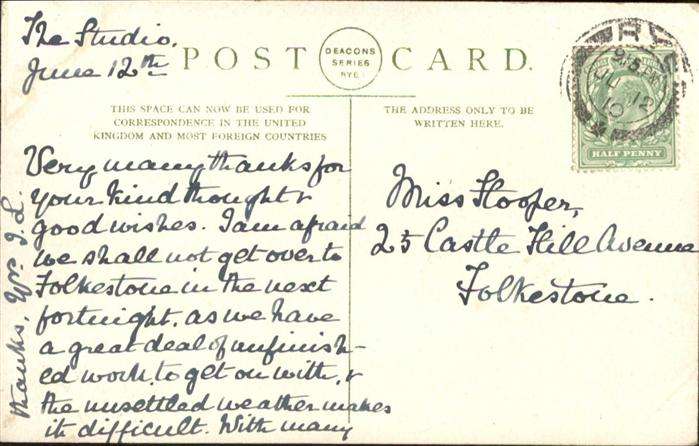 The Studio.
June 12th
POST CARD.
DEACONS
SERIES
RYE.
THIS SPACE CAN NOW BE USED FOR
CORRESPONDENCE IN THE UNITED
KINGDOM AND MOST FOREIGN COUNTRIES
THE ADDRESS ONLY TO BE
WRITTEN HERE.
RYE
JU 12
10
HALF PENNY
Very many thanks for
your kind thought &
good wishes. I am afraid
we shall not get over to
Folkestone in the next
fortnight, as we have
a great deal of unfinish-
ed work, to get on with, &
the unsettled weather makes
it difficult. With many
thanks, Yrs
Miss Hooper,
25 Castle Hill Avenue
Folkestone.